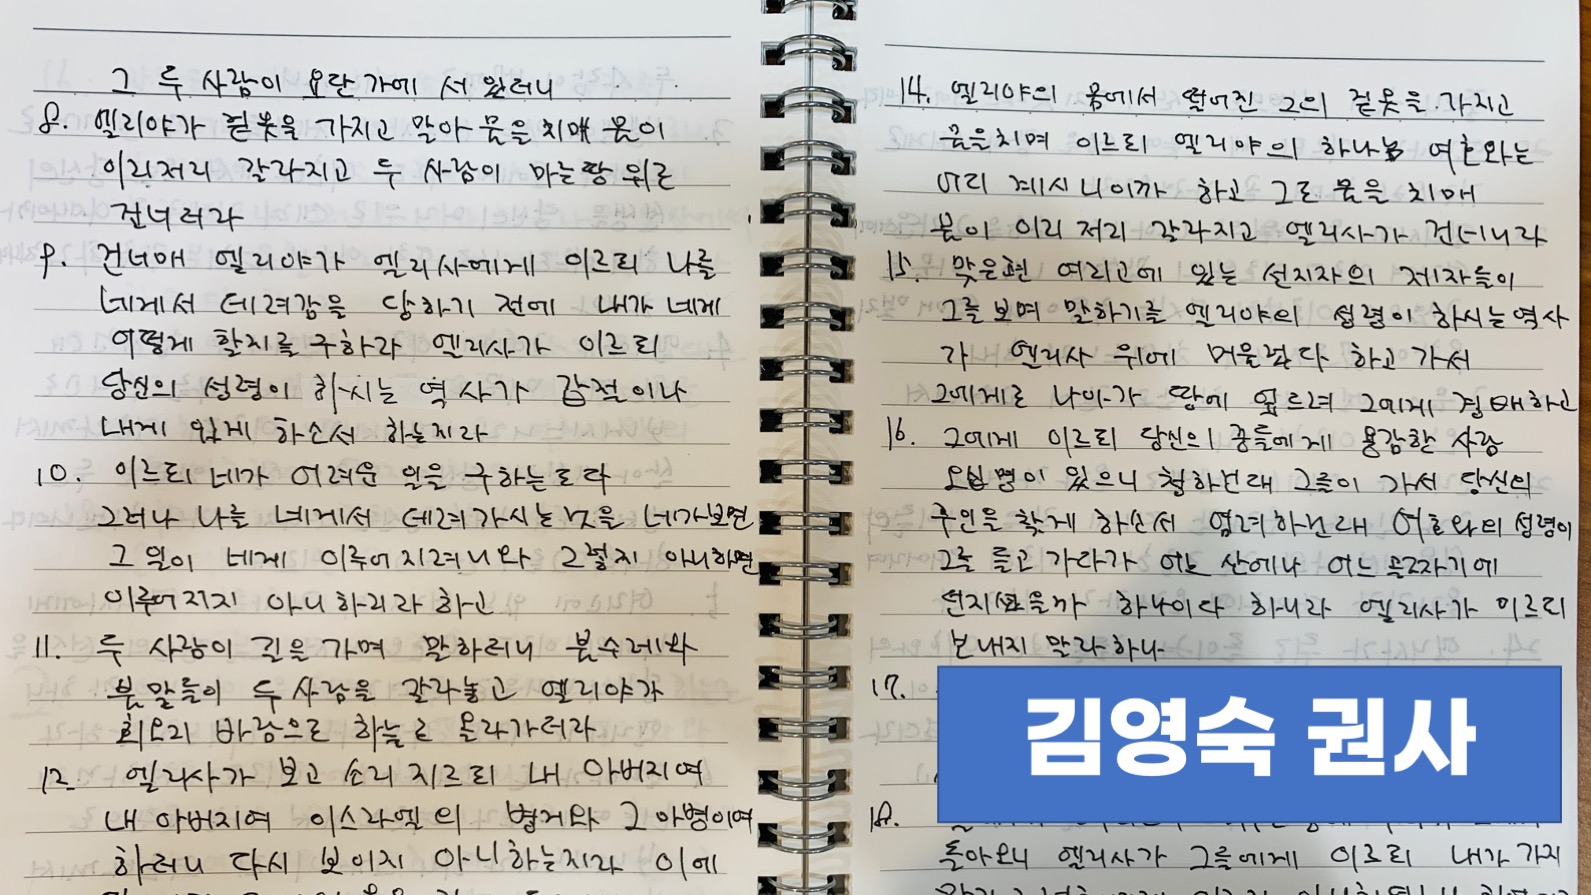 그 두 사람이 요단 가에 서 있더니
8. 엘리야가 겉옷을 가지고 말아 물을 치매 물이
이리저리 갈라지고 두 사람이 마른 땅 위로
건너더라
9. 건너매 엘리야가 엘리사에게 이르되 나를
네게서 데려감을 당하기 전에 내가 네게
어떻게 할지를 구하라 엘리사가 이르되
당신의 성령이 하시는 역사가 갑절이나
내게 있게 하소서 하는지라
10. 이르되 네가 어려운 일을 구하는도다
그러나 나를 네게서 데려가시는 것을 네가 보면
그 일이 네게 이루어지려니와 그렇지 아니하면
이루어지지 아니하리라 하고
11. 두 사람이 길을 가며 말하더니 불수레와
불말들이 두 사람을 갈라놓고 엘리야가
회오리 바람으로 하늘로 올라가더라
12. 엘리사가 보고 소리 지르되 내 아버지여
내 아버지여 이스라엘의 병거와 그 마병이여
하더니 다시 보이지 아니하는지라 이에
14. 엘리야의 몸에서 떨어진 그의 겉옷을 가지고
물을 치며 이르되 엘리야의 하나님 여호와는
어디 계시니이까 하고 그도 물을 치매
물이 이리 저리 갈라지고 엘리사가 건너니라
15. 맞은편 여리고에 있는 선지자의 제자들이
그를 보며 말하기를 엘리야의 성령이 하시는 역사
가 엘리사 위에 머물렀다 하고 가서
그에게로 나아가 땅에 엎드려 그에게 경배하고
16. 그에게 이르되 당신의 종들에게 용감한 사람
오십 명이 있으니 청하건대 그들이 가서 당신의
주인을 찾게 하소서 염려하건대 여호와의 성령이
그를 들고 가다가 어느 산에나 어느 골짜기에
던지셨을까 하나이다 하니라 엘리사가 이르되
보내지 말라 하나
17.
김영숙 권사
18.
돌아오니 엘리사가 그들에게 이르되 내가 가지